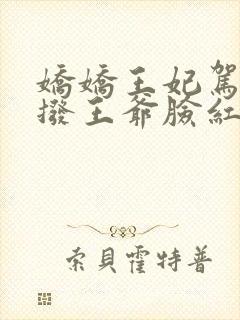 嬌嬌王妃駕
撥王爺臉紅
索貝霍特普